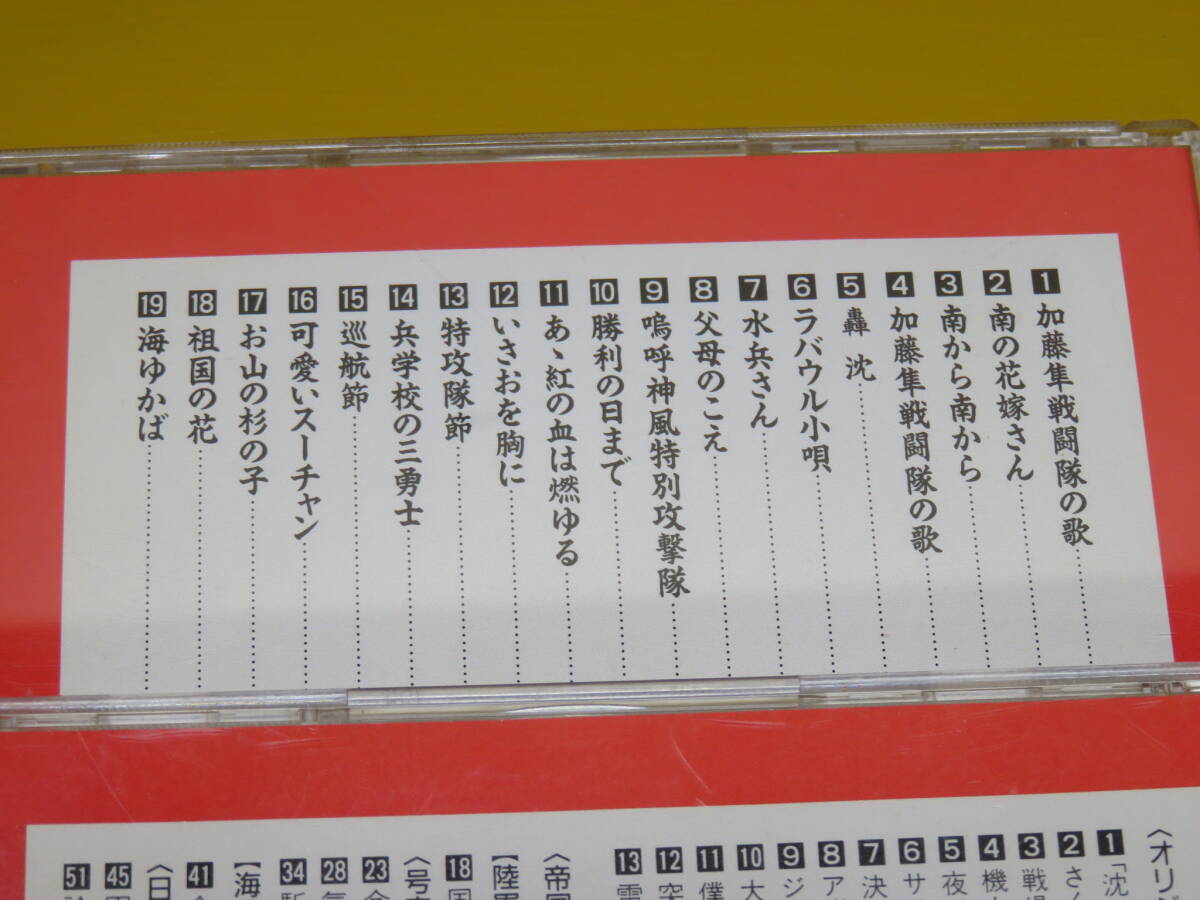 1 加藤隼戦闘隊の歌
2 南の花嫁さん
3 南から南から
4 加藤隼戦闘隊の歌
5 轟沈
6 ラバウル小唄
7 水兵さん
8 父母のこえ
9 嗚呼神風特別攻撃隊
10 勝利の日まで
11 あゝ紅の血は燃ゆる
12 いさおを胸に
13 特攻隊節
14 兵学校の三勇士
15 巡航節
16 可愛いスーチャン
17 お山の杉の子
18 祖国の花
19 海ゆかば
〈オリジ
1 「沈
2 さ
3 戦場
4 機
5 夜
6 サ
7 決
8 ア
9 ジ
10 大
11 僕
12 突
13 電
〈帝国
【陸軍
18 国
〈号
23
28
34
【海
41
〈日
45
51